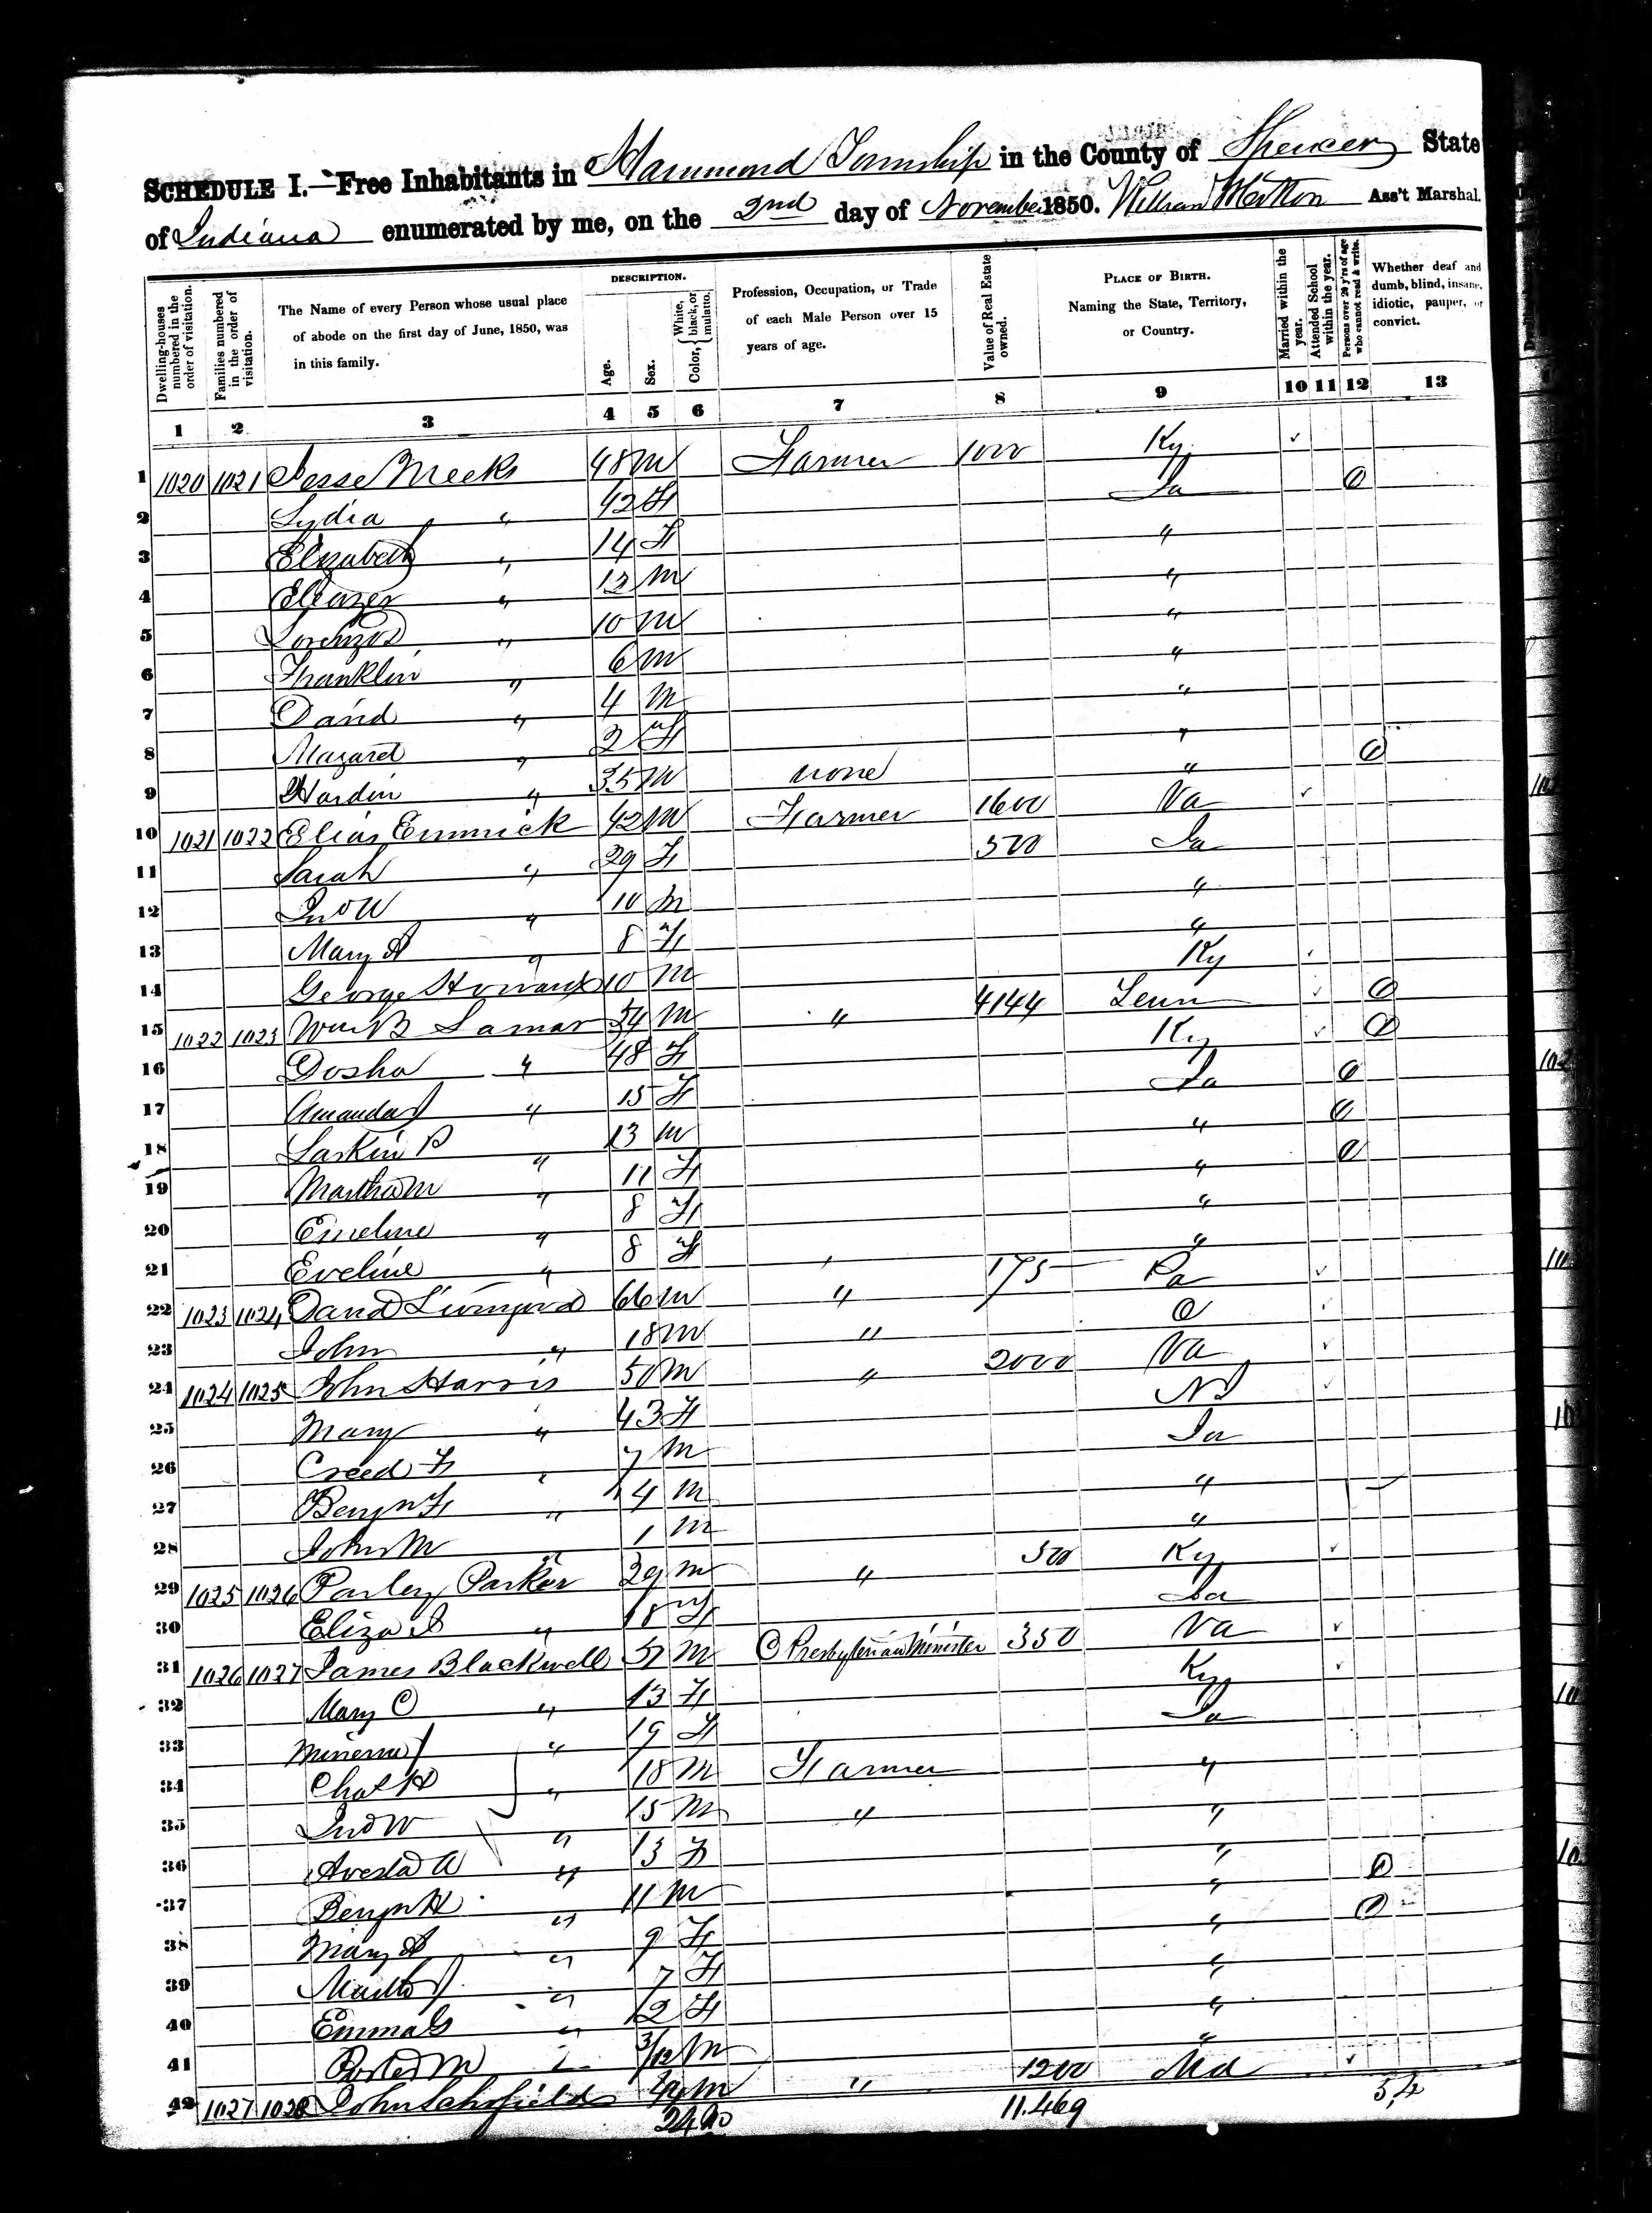 SCHEDULE I.—Free Inhabitants in Hammond Township in the County of Spencer State
of Indiana enumerated by me, on the 2nd day of November 1850. William Ass't Marshal.
Dwelling-houses numbered in the order of visitation.
Families numbered in the order of visitation.
The Name of every Person whose usual place of abode on the first day of June, 1850, was in this family.
DESCRIPTION.
Age.
Sex.
Color, { White, black, or mulatto.
Profession, Occupation, or Trade of each Male Person over 15 years of age.
Value of Real Estate owned.
PLACE OF BIRTH. Naming the State, Territory, or Country.
Married within the year.
Attended School within the year.
Persons over 20 y'rs of age who cannot read & write.
Whether deaf and dumb, blind, insane, idiotic, pauper, or convict.
1 2 3 4 5 6 7 8 9 10 11 12 13
1 1020 1021 Jesse Meeks 48 M Farmer 1000 Ky
2 Lydia " 42 F Ia
3 Elizabeth " 14 F "
4 Eleazer " 12 M "
5 Lorenzo D " 10 M "
6 Franklin " 6 M "
7 David " 4 M "
8 Margaret " 2 F "
9 Hardin " 35 M none "
10 1021 1022 Elias Emmick 42 M Farmer 1600 Va
11 Sarah " 29 F 500 Ia
12 Jno W " 10 M "
13 Mary A " 8 F "
14 George Howard 10 M Ky
15 1022 1023 Wm B Lamar 54 M " 4144 Tenn
16 Dosha " 48 F Ky
17 Amanda J " 15 F Ia
18 Larkin B " 13 M "
19 Martha M " 11 F "
20 Emeline " 8 F "
21 Eveline " 8 F "
22 1023 1024 David 66 M " 175 Pa
23 John " 18 M " O
24 1024 1025 John Harris 50 M " 2000 Va
25 Mary " 43 F NJ
26 Creed F " 7 M Ia
27 Benjn F " 4 M "
28 John M " 1 M "
29 1025 1026 Parley Parker 29 M " 500 Ky
30 Eliza J " 18 F Ia
31 1026 1027 James Blackwell 51 M C Presbyterian Minister 350 Va
32 Mary C " 43 F Ky
33 Minerva J " 19 F Ia
34 Chas H " 18 M Farmer "
35 Jno W " 15 M " "
36 A " 13 F "
37 Benjn H " 11 M "
38 Mary A " 9 F "
39 J " 7 F "
40 Emma G " 2 F "
41 Porter M " 3/12 M "
42 1027 1028 John Schofield 44 M " 1200 Md
11.469